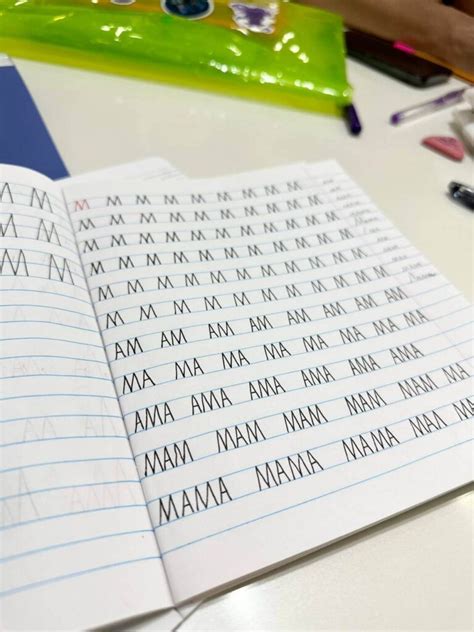 M M
M M M
M M M
M M M M M M M M
M M M M M M M M
M M M M M M M M M
M M M M M M M M M
M M M M M M M M M M
AM AM AM AM AM AM AM
MA MA MA MA MA MA MA
AMA AMA AMA AMA AMA AMA
MAM MAM MAM MAM MAM
MAMA MAMA MAMA